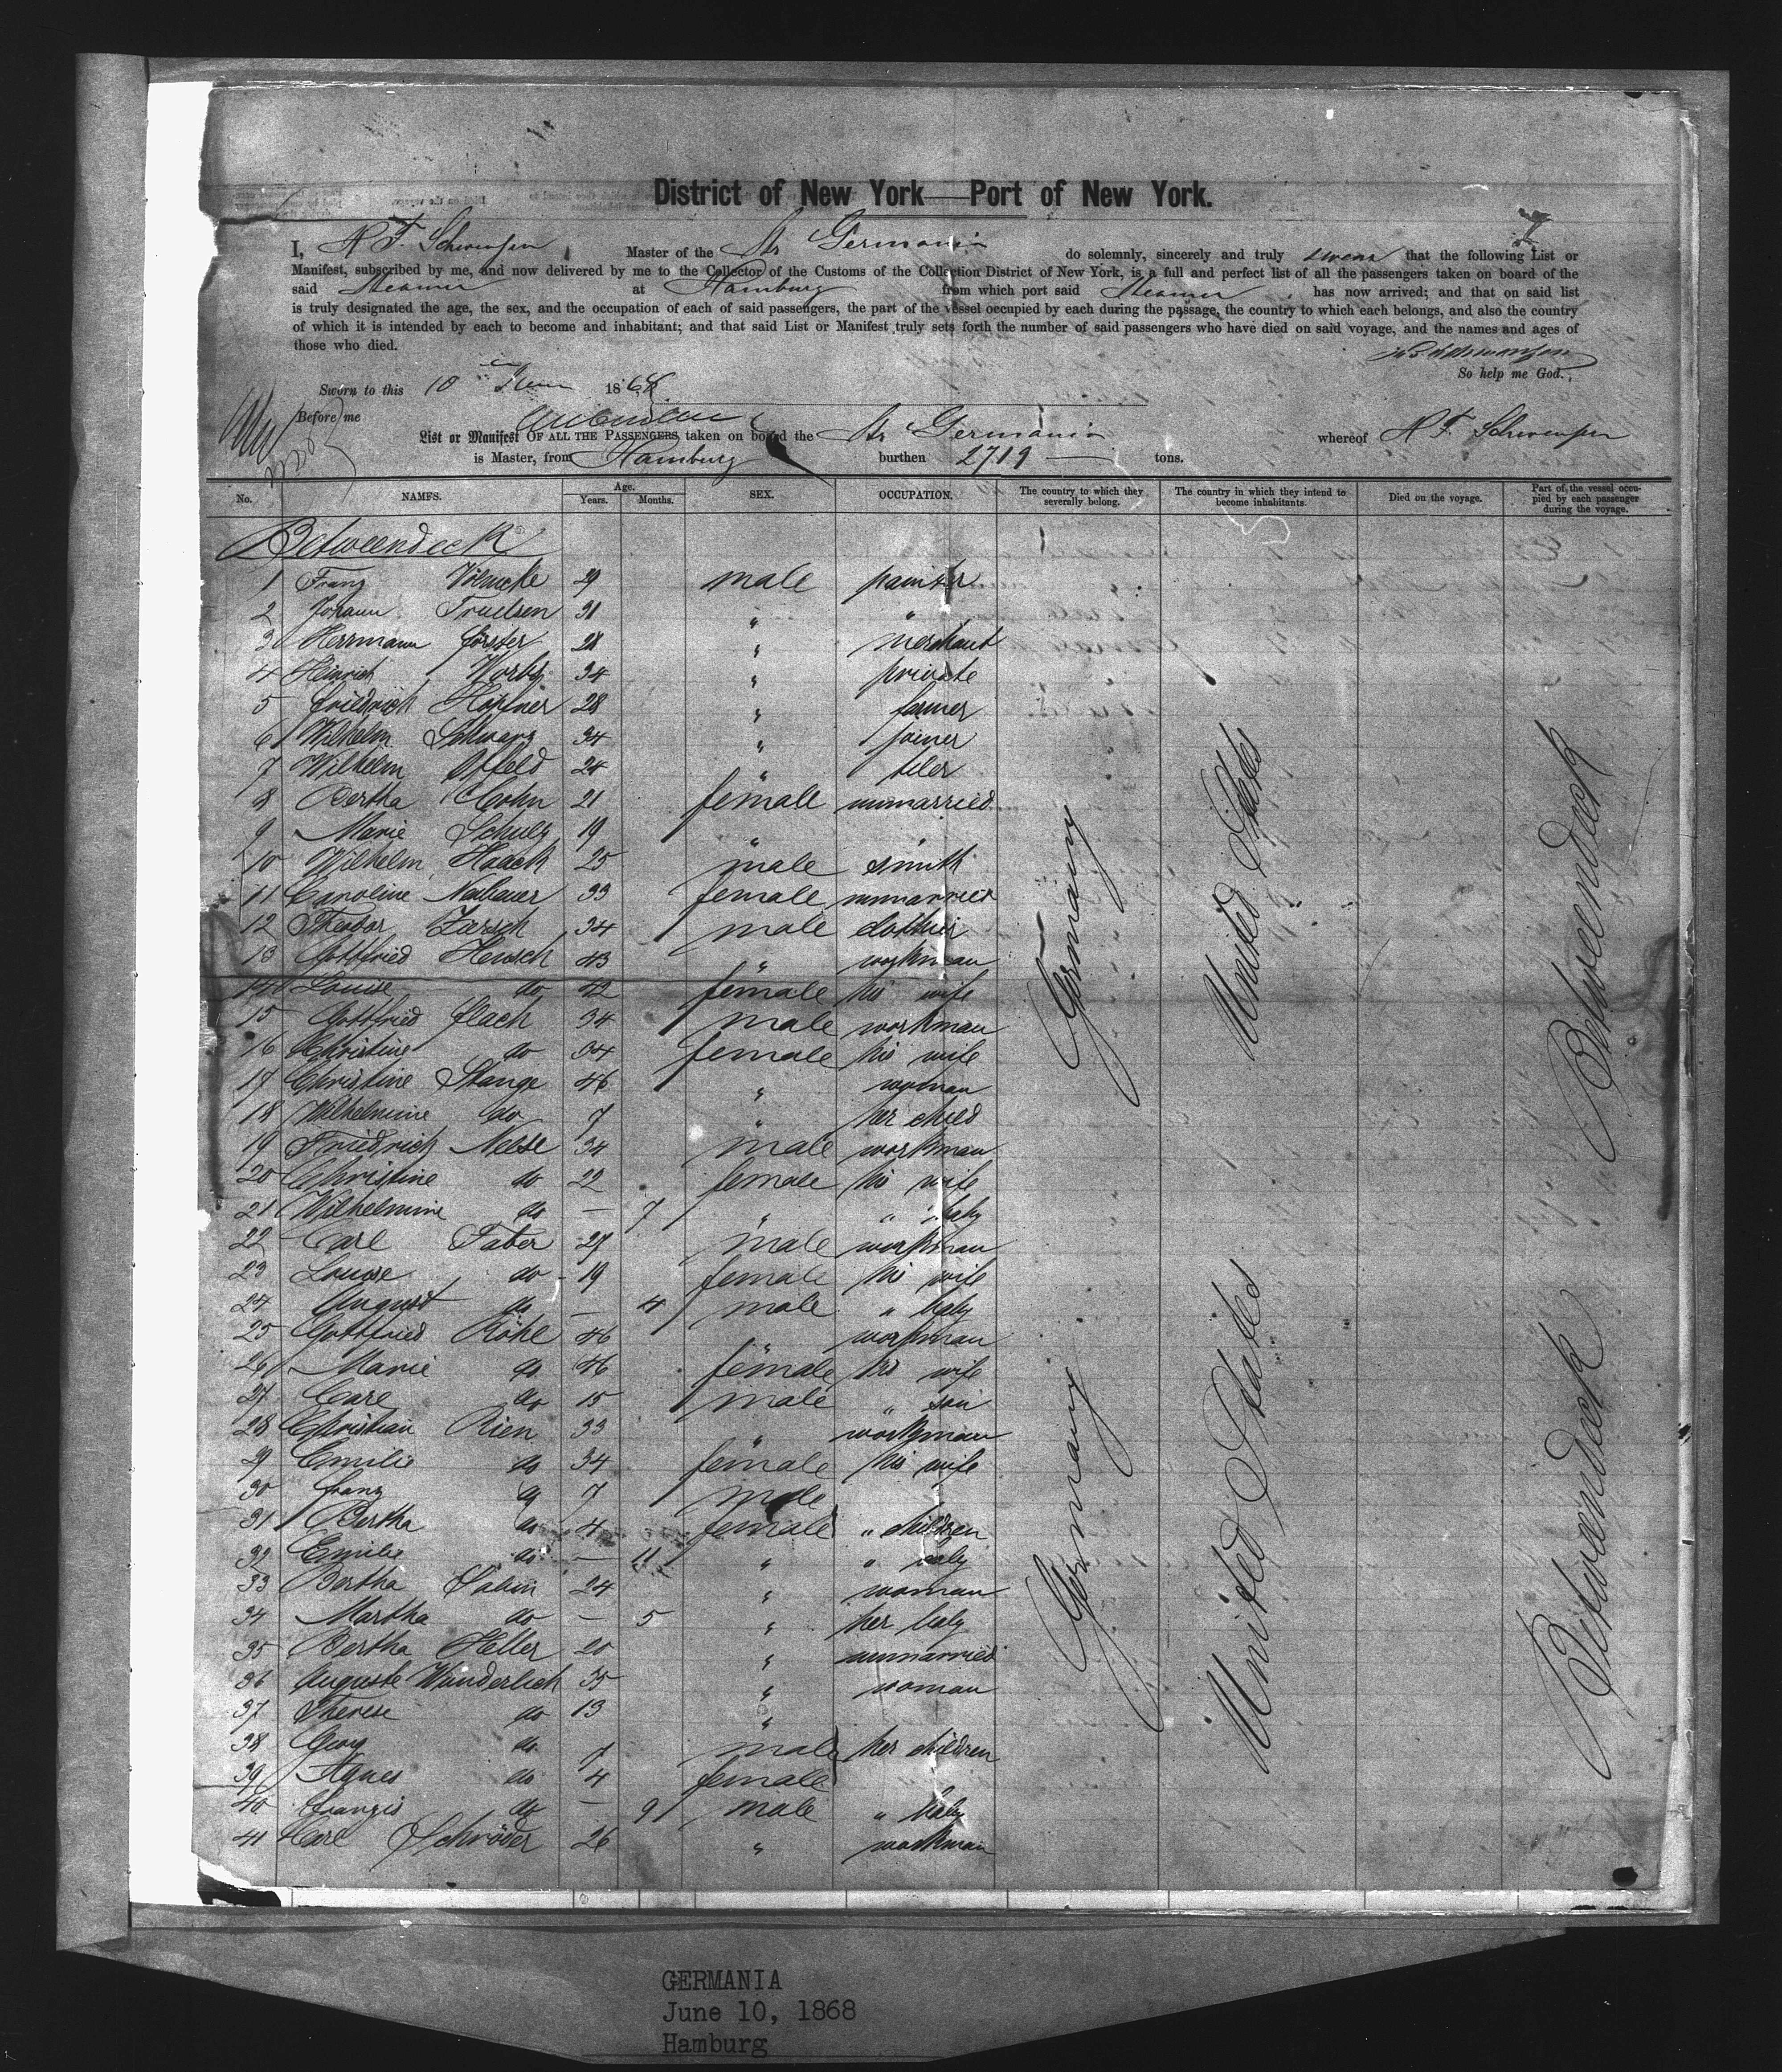 District of New York Port of New York.
I, Master of the Str Germania do solemnly, sincerely and truly swear that the following List or
Manifest, subscribed by me, and now delivered by me to the Collector of the Customs of the Collection District of New York, is a full and perfect list of all the passengers taken on board of the
said Steamer at Hamburg from which port said Steamer has now arrived; and that on said list
is truly designated the age, the sex, and the occupation of each of said passengers, the part of the vessel occupied by each during the passage, the country to which each belongs, and also the country
of which it is intended by each to become and inhabitant; and that said List or Manifest truly sets forth the number of said passengers who have died on said voyage, and the names and ages of
those who died.
So help me God.
Sworn to this 10 June 1868
Before me
List or Manifest OF ALL THE PASSENGERS taken on board the Str Germania whereof
is Master, from Hamburg burthen 2719 tons.
No. NAMES. Age. Years. Months. SEX. OCCUPATION. The country to which they severally belong. The country in which they intend to become inhabitants. Died on the voyage. Part of the vessel occupied by each passenger during the voyage.
Betweendeck
1 Franz 29 male painter
2 Johann Truelsen 31 " "
3 Herrmann Förster 28 " merchant
4 Heinrich 34 " private
5 Friedrich Höpfner 28 " farmer
6 Wilhelm Schwarz 34 " joiner
7 Wilhelm Opfeld 24 " tiler
8 Bertha Cohn 21 female unmarried
9 Marie Schulz 19 " "
10 Wilhelm Haack 25 male smith
11 Caroline Neubauer 33 female unmarried
12 Theodor 34 male clothier
13 Gottfried Hensch 43 " workman
14 Louise do 42 female his wife
15 Gottfried Flach 34 male workman
16 Christine do 34 female his wife
17 Christine Stange 46 " woman
18 Wilhelmine do 7 " her child
19 Friedrich Neese 34 male workman
20 Christine do 22 female his wife
21 Wilhelmine do — 7 " " baby
22 Carl Faber 27 male workman
23 Louise do 19 female his wife
24 August do — 4 male " baby
25 Gottfried Röhl 46 " workman
26 Marie do 46 female his wife
27 Carl do 15 male " son
28 Christian Rien 33 " workman
29 Emilie do 34 female his wife
30 Franz do 7 male
31 Bertha do 4 female " children
32 Emilie do — 11 " " baby
33 Bertha 24 " woman
34 Martha do — 5 " her baby
35 Bertha Heller 20 " unmarried
36 Auguste Wunderlich 35 " woman
37 Therese do 13 "
38 Georg do 7 male her children
39 Agnes do 4 female
40 do — 9 male " baby
41 Carl Schröder 26 " workman
Germany
United States
Betweendeck
Germany
United States
Betweendeck
GERMANIA
June 10, 1868
Hamburg